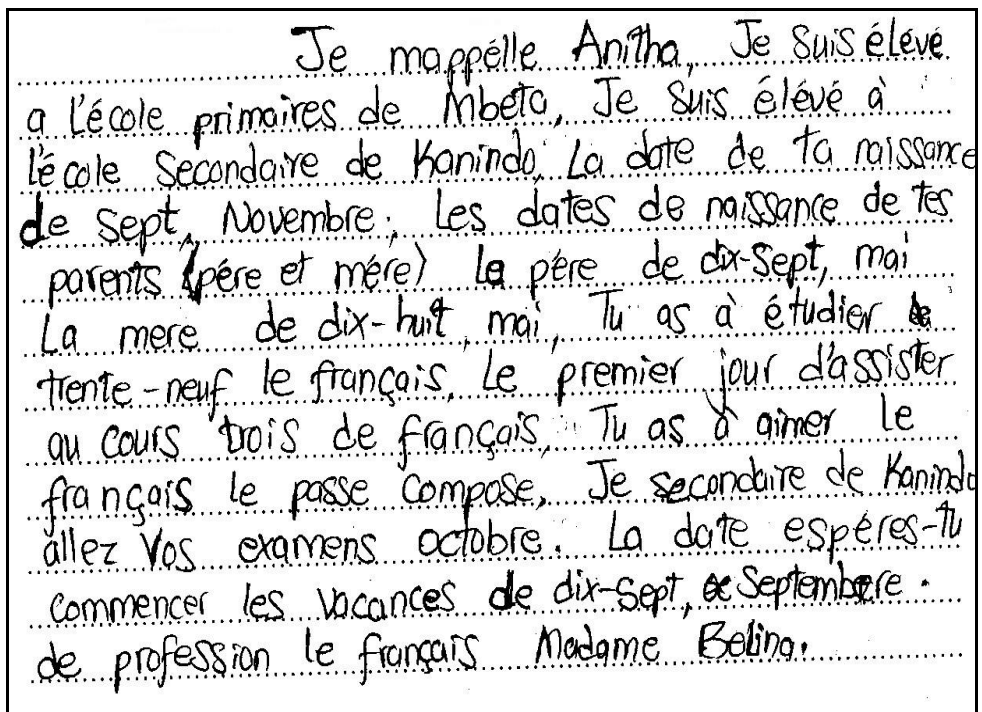 Je mappélle Anitha, Je suis élévé
a l'école primaires de Mbeta, Je suis élévé à
l'école Secondaire de Kanindo, La date de ta naissance
de sept, Novembre, Les dates de naissance de tes
parents (pére et mére) le pére de dix-sept, mai
La mere de dix-huit, mai, Tu as à étudier le
trente-neuf le français, Le premier jour d'assister
au cours trois de français, Tu as à aimer le
français le passe compose, Je secondaire de Kanindo
allez Vos examens octobre. La date espéres-tu
commencer les vacances de dix-sept, Septembere.
de profession le français Madame Belina.